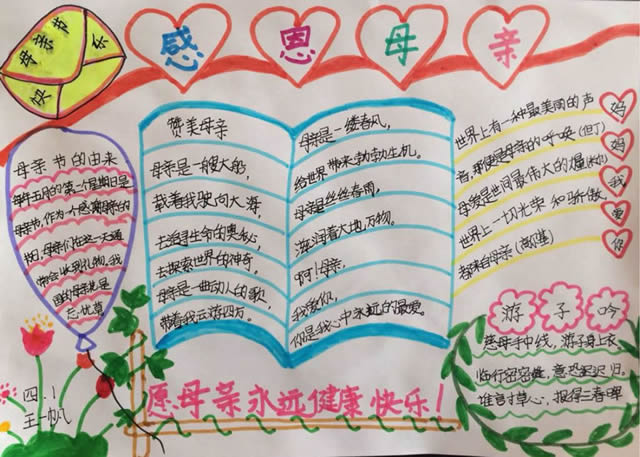 母亲节快乐
感恩母亲
母亲节的由来
每年五月的第二个星期日是
母亲节,作为一个感恩母亲的
节日,母亲们在这一天通
常会收到礼物,我
国的母亲花是
忘忧草。
四.1
王一帆
赞美母亲
母亲是一艘大船,
载着我驶向大海,
去追寻生命的奥秘,
去探索世界的神奇,
母亲是一曲动人的歌,
带着我云游四方。
母亲是一缕春风,
给世界带来勃勃生机。
母亲是丝丝春雨,
滋润着大地万物。
啊!母亲,
我爱你,
你是我心中永远的最爱。
世界上有一种最美丽的声
音,那便是母亲的呼唤(但丁)
母爱是世间最伟大的力量
世界上一切光荣和骄傲,
都来自母亲
妈
妈
我
爱
你
游子吟
慈母手中线,游子身上衣
临行密密缝,意恐迟迟归,
谁言寸草心,报得三春晖
愿母亲永远健康快乐!